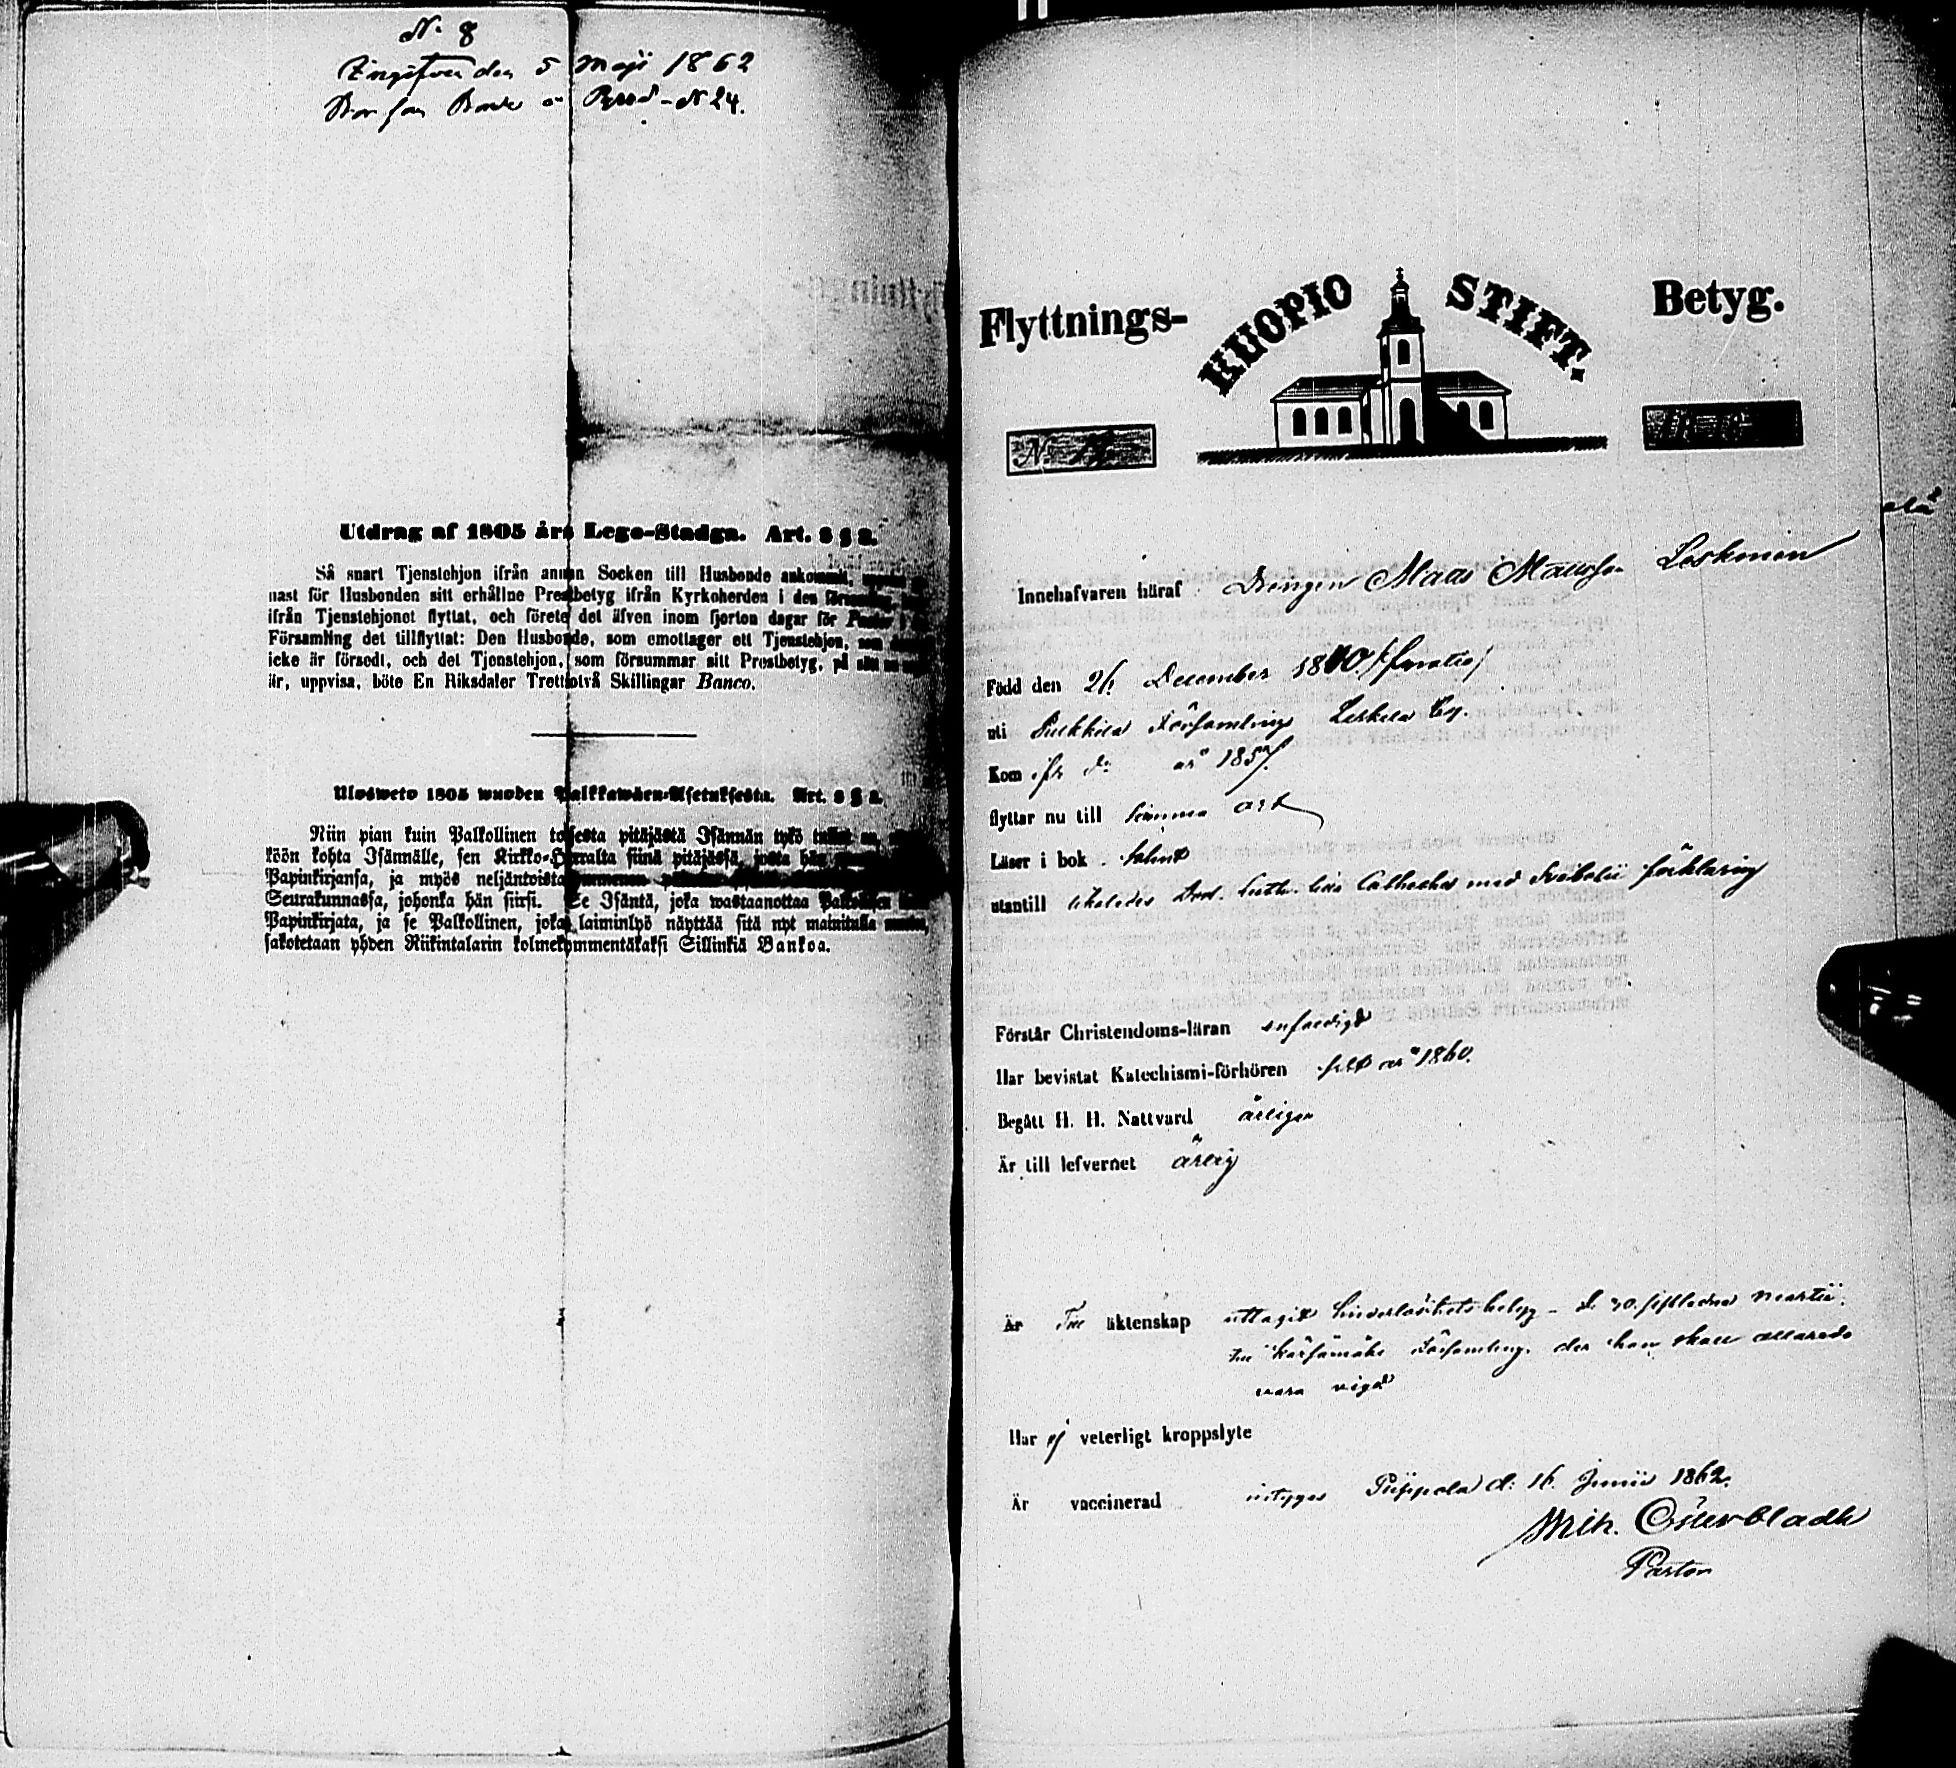 N. 8
Ingifven den 5 Maji 1862
N 24.
Utdrag af 1805 års Lego-Stadga. Art. 8 § 2.
Så snart Tjenstehjon ifrån annan Socken till Husbonde ankommit,
nast för Husbonden sitt erhållne Prestbetyg ifrån Kyrkoherden i den
ifrån Tjenstehjonet flyttat, och förete det äfven inom fjorton dagar för Pastor i
Församling det tillflyttat: Den Husbonde, som emottager ett Tjenstehjon, som
icke är försedt, och det Tjenstehjon, som försummar sitt Prestbetyg, på sätt
är, uppvisa, böte En Riksdaler Trettiotvå Skillingar Banco.
Ulosweto 1805 wuoden Palkkawäen-Asetuksesta. Art. 8 § 2.
Niin pian kuin Palkollinen toisesta pitäjästä Isännän tykö tullut on,
köön kohta Isännälle, sen Kirkko-Herralta siinä pitäjässä, josta hän
Papinkirjansa, ja myös neljäntoista
Seurakunnassa, johonka hän siirsi. Se Isäntä, joka wastaanottaa Palkollisen
Papinkirjata, ja se Palkollinen, joka laiminlyö näyttää sitä nyt mainitulla
sakotetaan yhden Riikintalarin kolmekymmentäkaksi Sillinkiä Bankoa.
Flyttnings- KUOPIO STIFT. Betyg.
N:
Innehafvaren häraf Drengen Maas Leskinen
Född den 26 December 1840
uti Pulkkila Församlings Leskelä by.
Kom ifr. år 1857.
flyttar nu till samma ort
Läser i bok
utantill Luth. Catheches med Svebelii förklaring
Förstår Christendoms-läran
Har bevistat Katechismi-förhören sist år 1860.
Begått H. H. Nattvard årligen
Är till lefvernet ärlig
Är till äktenskap uttagit hinderlöshets betyg d. 30. sistledne Martii
till Kärsämäki Församling, der han skall allarede
vara vigd
Har ej veterligt kroppslyte
Är vaccinerad intygas Piippola d. 16. Junii 1862.
Wilh. Österbladh
Pastor